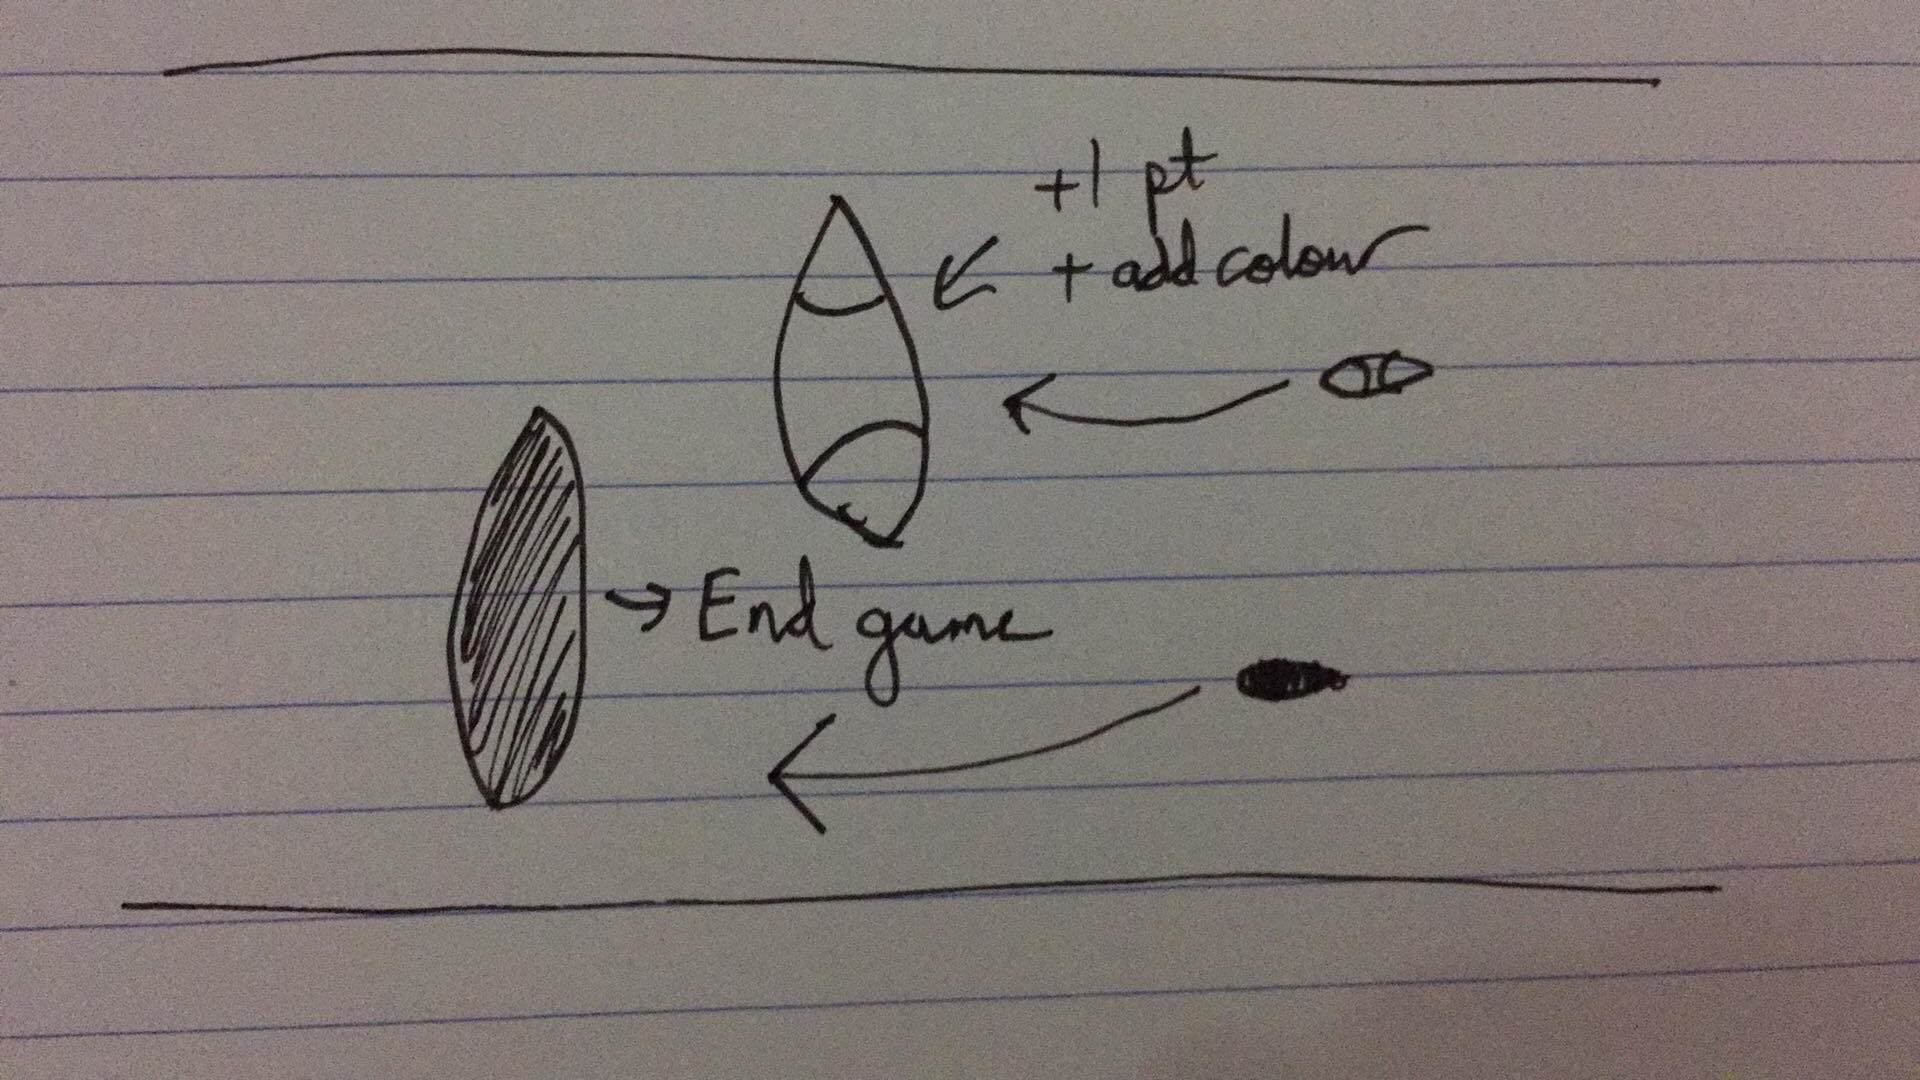 +1 pt
+ add colour
→ End game